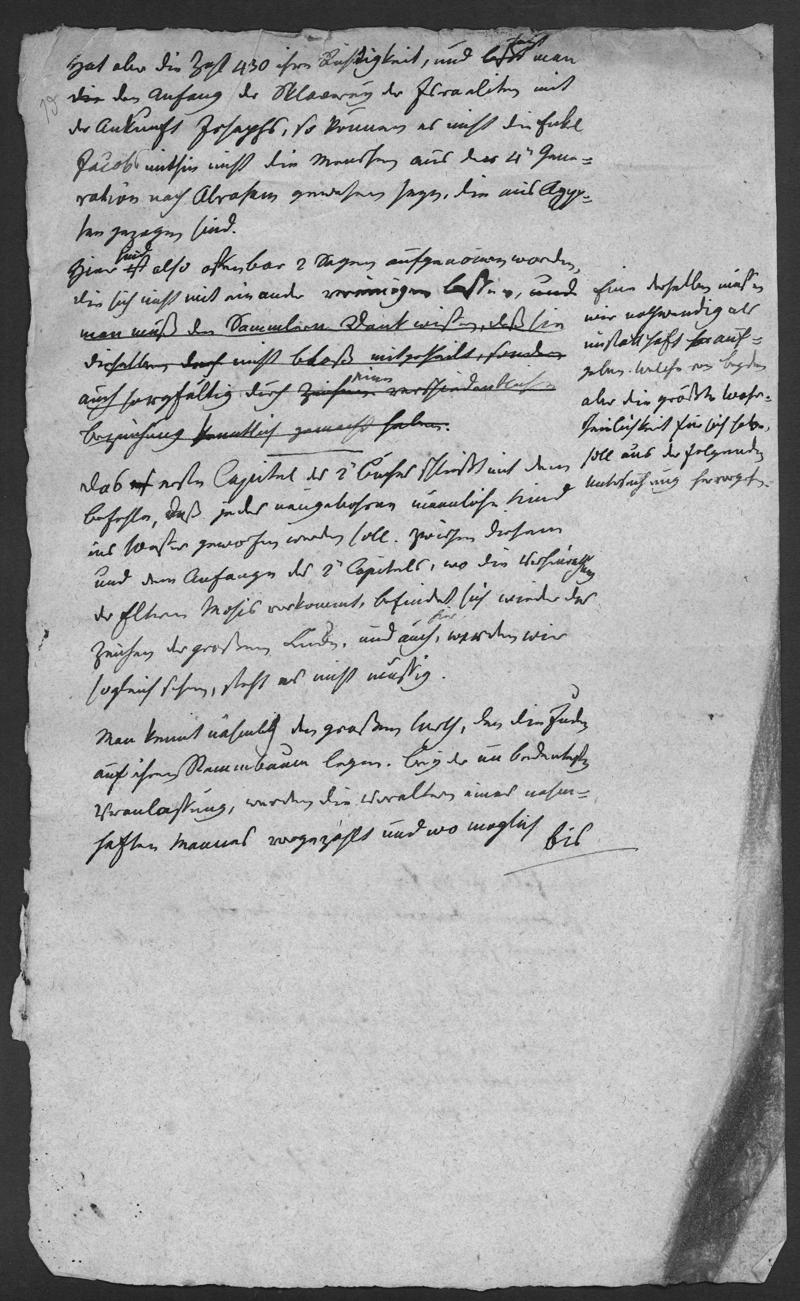 Hat aber die Zahl 430 ihre Richtigkeit, und läßt man
die den Anfang der Sklaverey der Israeliten mit
der Ankunft Josephs, so können es nicht die Enkel
Jacobs mithin nicht die Menschen aus der 4n Gene=
ration nach Abraham gewesen seyn, die aus Aegyp=
ten gezogen sind.
Hier sind also offenbar 2 Sagen aufgenommen worden,
die sich nicht mit einander vereinigen lassen, und
man muß den Sammlern Dank wissen, daß sie
dieselben nicht bloß mitgetheilt, sondern
auch sorgfältig durch eine
Bezeichnung kenntlich gemacht haben.
Eine derselben müssen
wir nothwendig als
unstatthaft auf=
geben. welche von beyden
aber die größte Wahr=
scheinlichkeit für sich habe,
soll aus der folgenden
Untersuchung hervorgehn.
Das erste Capitel des 2n Buches schließt mit dem
Befehle, daß jedes neugebohrne männliche Kind
ins Wasser geworfen werden soll. Zwischen diesem
und dem Anfange des 2n Capitels, wo die Verheirathung
der Eltern Mosis vorkommt, befindet sich wieder das
Zeichen der großen Lücke, und auch hier, werden wir
sogleich sehen, steht es nicht müssig.
Man kennt nähmlich den großen Werth, den die Juden
auf ihren Stammbaum legen. Bey der unbedeutendsten
Veranlassung, werden die Voreltern eines nahm=
haften Mannes vorgezählt und wo möglich
bis